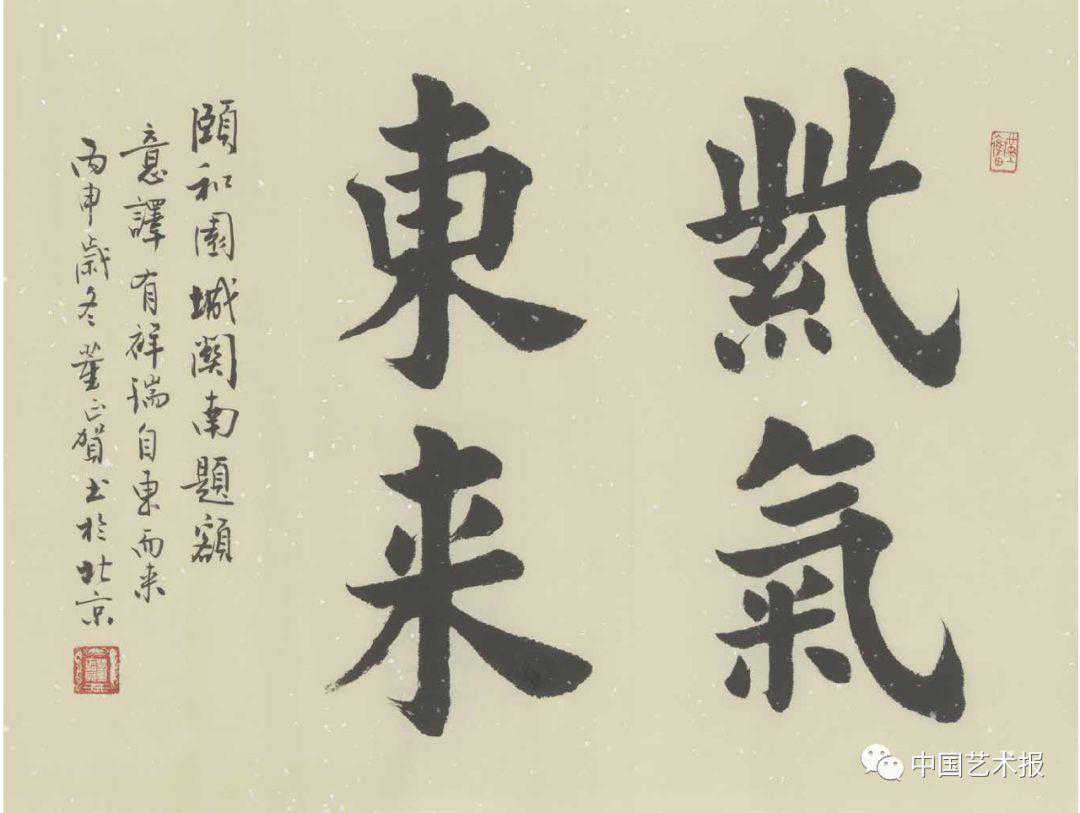 紫氣
東来
頤和園城関南題额
意譯有祥瑞自東而来
丙申歲冬董正賀书於北京
中国艺术报